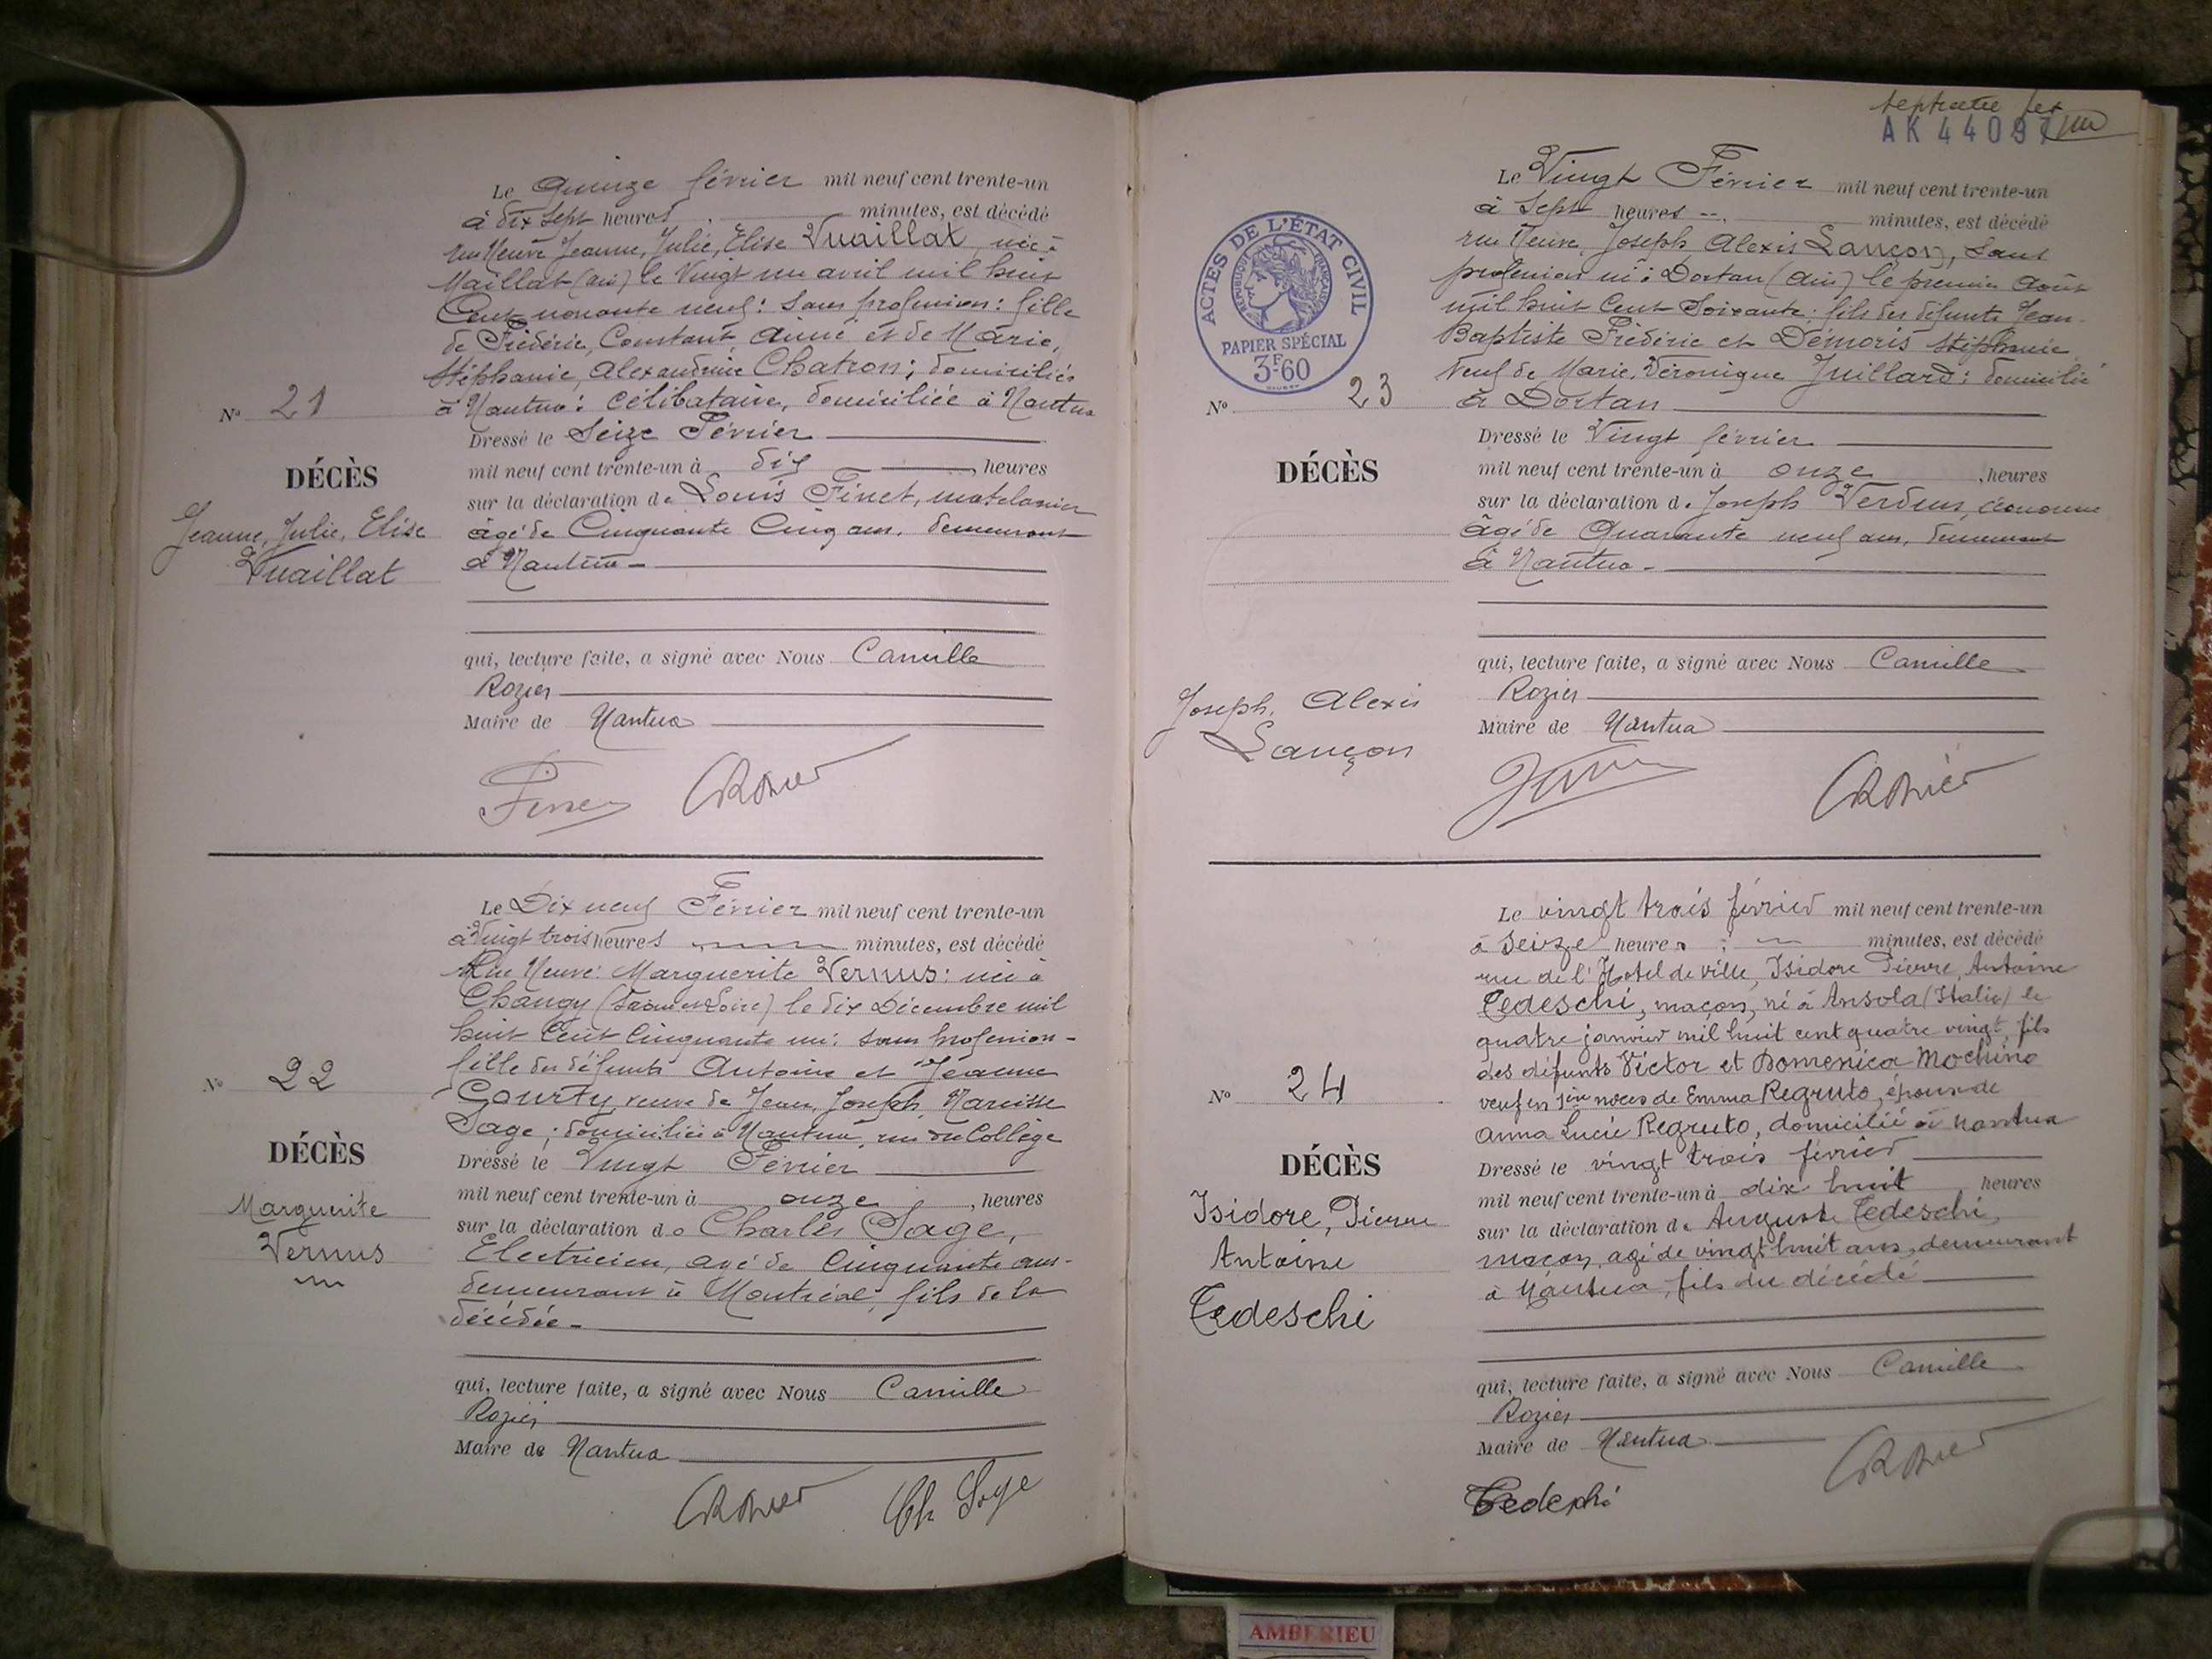 Le Quinze février mil neuf cent trente-un
à dix sept heures minutes, est décédé
rue Neuve Jeanne, Julie, Elise Vuaillat, née à
Maillat (ain) le Vingt un avril mil huit
Cent nonante neuf: Sans profession: fille
de Frédéric, Constant, Aimé et de Marie,
Stéphanie, Alexandrine Chatron; domiciliés
à Nantua: Célibataire, domiciliée à Nantua
N° 21
Dressé le Seize Février
mil neuf cent trente-un à dix heures
DÉCÈS
sur la déclaration de Louis Finet, matelassier
Jeanne, Julie, Elise
Vuaillat
âgé de Cinquante Cinq ans, demeurant
à Nantua
qui, lecture faite, a signé avec Nous Camille
Rozier
Maire de Nantua
Finet
CRozier
Le Dix neuf Février mil neuf cent trente-un
à Vingt trois heures minutes, est décédé
Rue Neuve: Marguerite Vernus: née à
Changy (Saône et Loire) le dix Décembre mil
huit Cent Cinquante un: Sans profession -
fille des défunts Antoine et Jeanne
Gourty, veuve de Jean, Joseph, Narcisse
Sage; domiciliée à Nantua, rue du Collège
N° 22
Dressé le Vingt Février
DÉCÈS
mil neuf cent trente-un à onze, heures
Marguerite
Vernus
sur la déclaration de Charles Sage,
Electricien, agé de Cinquante ans-
demeurant à Montréal, fils de la
décédée-
qui, lecture faite, a signé avec Nous Camille
Rozier
Maire de Nantua
CRozier
Ch Sage
AK 44097
Le Vingt Février mil neuf cent trente-un
à Sept heures minutes, est décédé
rue Neuve, Joseph Alexis Lançon, Sans
profession né à Dortan (ain) le premier Août
mil huit Cent Soixante: fils des défunts Jean
Baptiste Frédéric et Démoris Stéphanie
Veuf de Marie, Véronique Juillard: domicilié
à Dortan
ACTES DE L'ÉTAT CIVIL
RÉPUBLIQUE FRANÇAISE
PAPIER SPÉCIAL
3F60
N° 23
Dressé le Vingt février
DÉCÈS
mil neuf cent trente-un à onze, heures
sur la déclaration de Joseph Verdun, économe
âgé de Quarante neuf ans, demeurant
à Nantua-
Joseph, Alexis
Lançon
qui, lecture faite, a signé avec Nous Camille
Rozier
Maire de Nantua
CRozier
Le vingt trois février mil neuf cent trente-un
à seize heures minutes, est décédé
rue de l'Hotel de ville, Isidore Pierre, Antoine
Tedeschi, maçon, né à Ansola (Italie) le
quatre janvier mil huit cent quatre vingt, fils
des défunts Victor et Domenica Mochino
veuf en 1ères noces de Emma Regruto, époux de
Anna Lucie Regruto, domicilié à Nantua
N° 24
Dressé le vingt trois février
DÉCÈS
mil neuf cent trente-un à dix huit heures
Isidore, Pierre
Antoine
Tedeschi
sur la déclaration de Auguste Tedeschi,
maçon, agé de vingt huit ans, demeurant
à Nantua, fils du décédé
qui, lecture faite, a signé avec Nous Camille
Rozier
Maire de Nantua
CRozier
Tedeschi
AMBERIEU